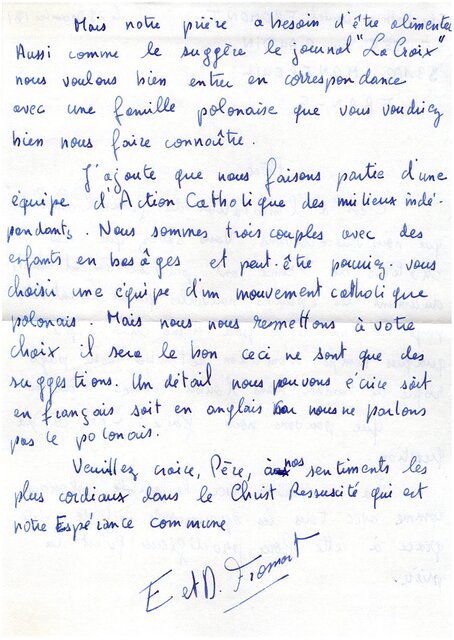 Mais notre prière a besoin d'être alimentée
Aussi comme le suggère le journal "La Croix"
nous voulons bien entrer en correspondance
avec une famille polonaise que vous voudriez
bien nous faire connaître.
J'ajoute que nous faisons partie d'une
équipe d'Action Catholique des milieux indé-
pendants. Nous sommes trois couples avec des
enfants en bas âges et peut-être pourriez-vous
choisir une équipe d'un mouvement catholique
polonais. Mais nous nous remettons à votre
choix il sera le bon ceci ne sont que des
suggestions. Un détail nous pouvons écrire soit
en français soit en anglais car nous ne parlons
pas le polonais.
Veuillez croire, Père, à nos sentiments les
plus cordiaux dans le Christ Ressuscité qui est
notre Espérance commune
E et D. Fromont